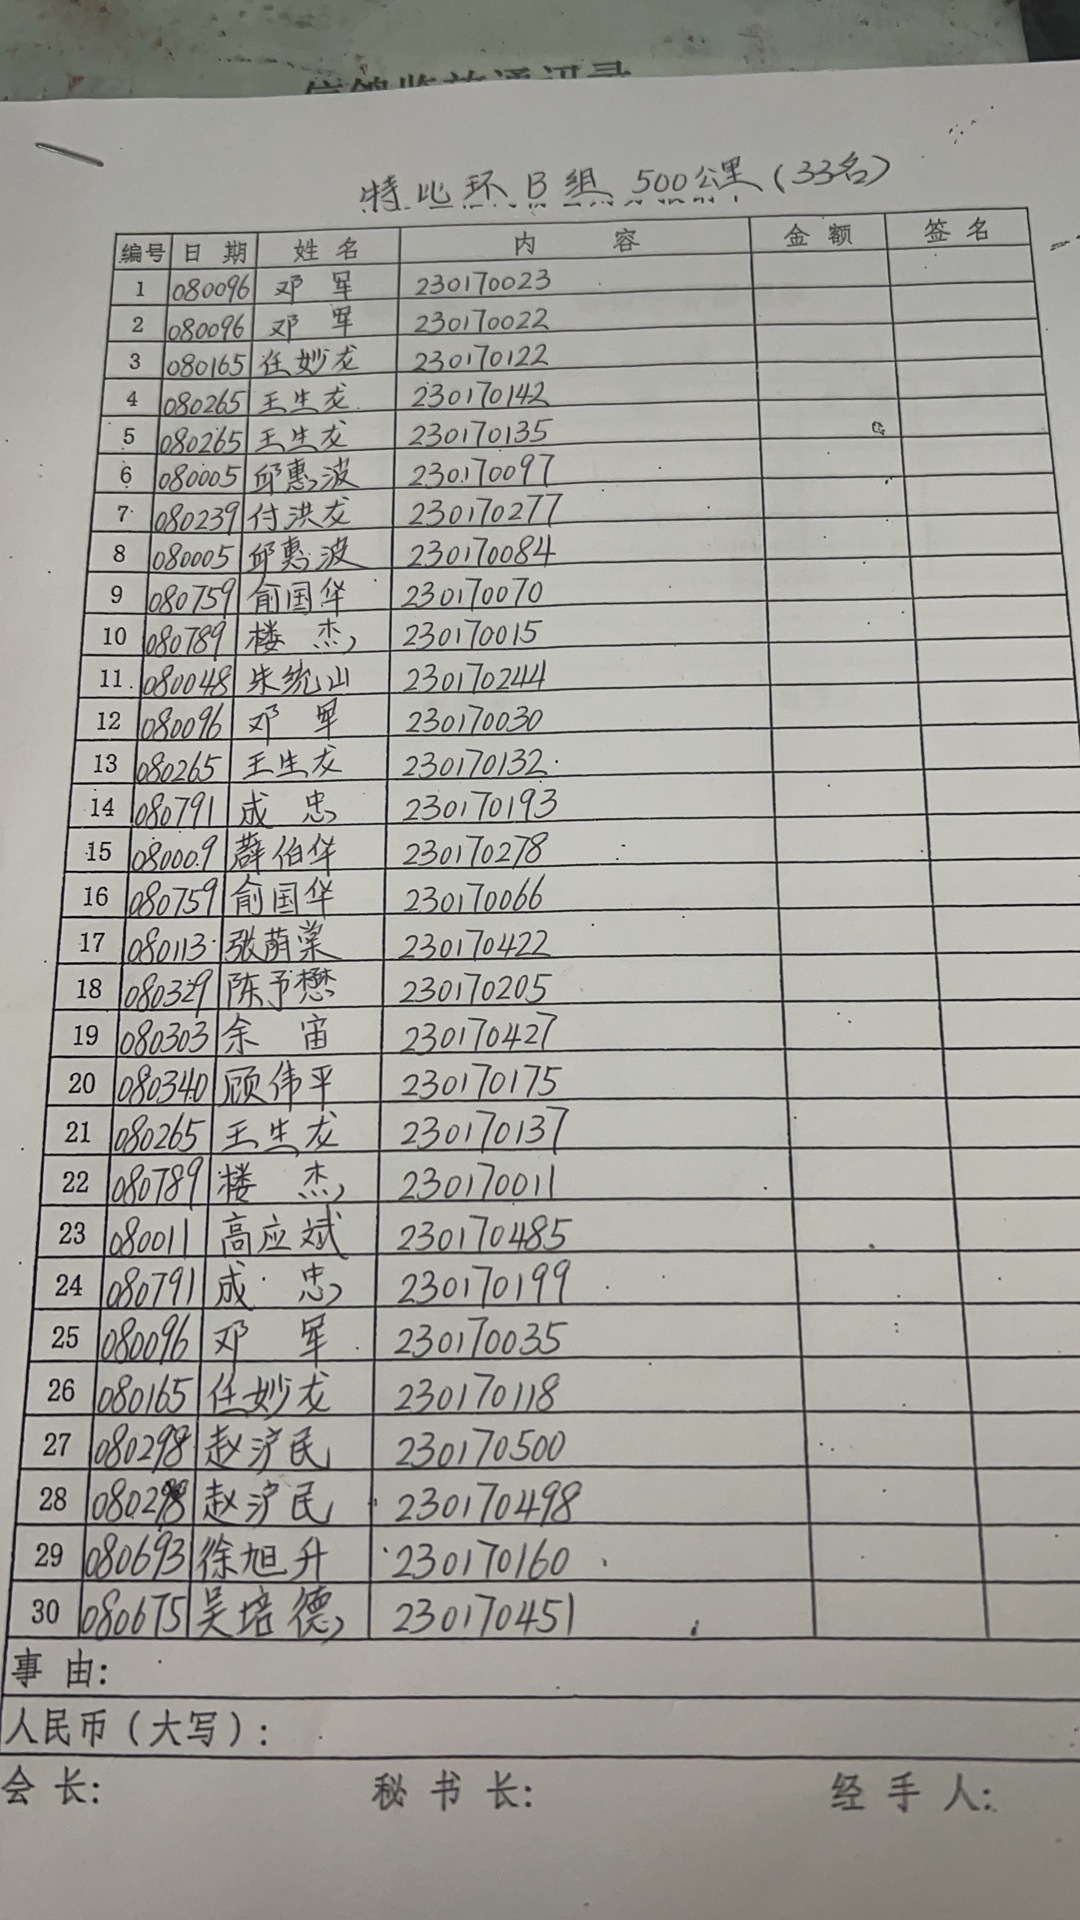 特比环B组 500公里(33名)
编号 日期 姓名 内容 金额 签名
1 080096 邓军 230170023
2 080096 邓军 230170022
3 080165 任妙龙 230170122
4 080265 王生龙 230170142
5 080265 王生龙 230170135
6 080005 邱惠波 230170097
7 080239 付洪龙 230170277
8 080005 邱惠波 230170084
9 080759 俞国华 230170070
10 080789 楼杰 230170015
11 080048 朱统山 230170244
12 080096 邓军 230170030
13 080265 王生龙 230170132
14 080791 成忠 230170193
15 080009 薛伯华 230170278
16 080759 俞国华 230170066
17 080113 张荫棠 230170422
18 080329 陈予懋 230170205
19 080303 余宙 230170427
20 080340 顾伟平 230170175
21 080265 王生龙 230170137
22 080789 楼杰 230170011
23 080011 高应斌 230170485
24 080791 成忠 230170199
25 080096 邓军 230170035
26 080165 任妙龙 230170118
27 080298 赵沪民 230170500
28 080298 赵沪民 230170498
29 080693 徐旭升 230170160
30 080675 吴培德 230170451
事由:
人民币(大写):
会长: 秘书长: 经手人: